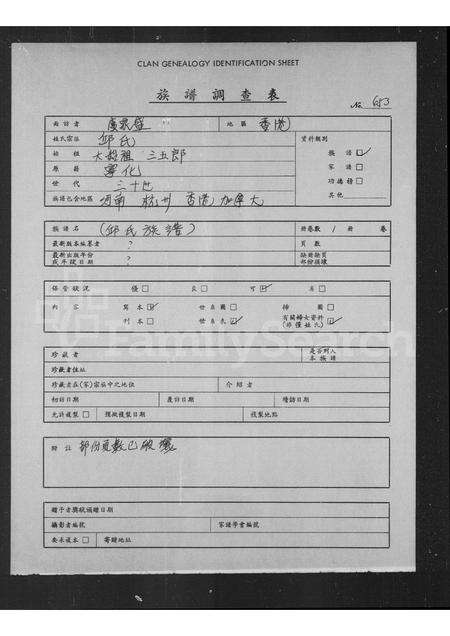 CLAN GENEALOGY IDENTIFICATION SHEET
族譜調查表
No. 653
面訪者 地區 香港
姓氏宗族 邱氏 資料類別
始祖 大 祖 三五郎 族譜 ☑
原籍 寧化 家譜 □
世代 三十世 功德榜 □
族譜包含地區 河南 杭州 香港 加拿大 其他
族譜名 (邱氏族譜) 冊卷數 1 冊 卷
最新版本編纂者 ? 頁數
最新出版年份 或年段日期 ? 缺冊缺頁 部份損壞
保管狀況 優 □ 良 □ 可 ☑ 劣 □
內容 寫本 ☑ 世系圖 □ 掃圖 □
刊本 □ 世系表 ☑ 有關婦女資料 (非僅姓氏) ☑
珍藏者 是否列入本族譜
珍藏者住址
珍藏者在(家)宗族中之地位 介紹者
初訪日期 覆訪日期 續訪日期
允許複製 □ 預約複製日期 複製地點
附註 部份頁數已破壞
贈予者獎狀頒贈日期
攝影者編號 家譜學會編號
要求複本 □ 寄贈地址
FamilySearch